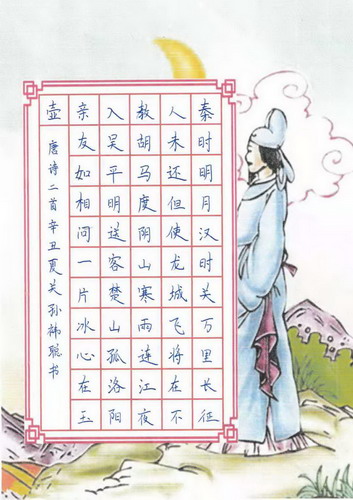 秦时明月汉时关万里长征
人未还但使龙城飞将在不
教胡马度阴山寒雨连江夜
入吴平明送客楚山孤洛阳
亲友如相问一片冰心在玉
壶
唐诗二首辛丑夏关孙聪书